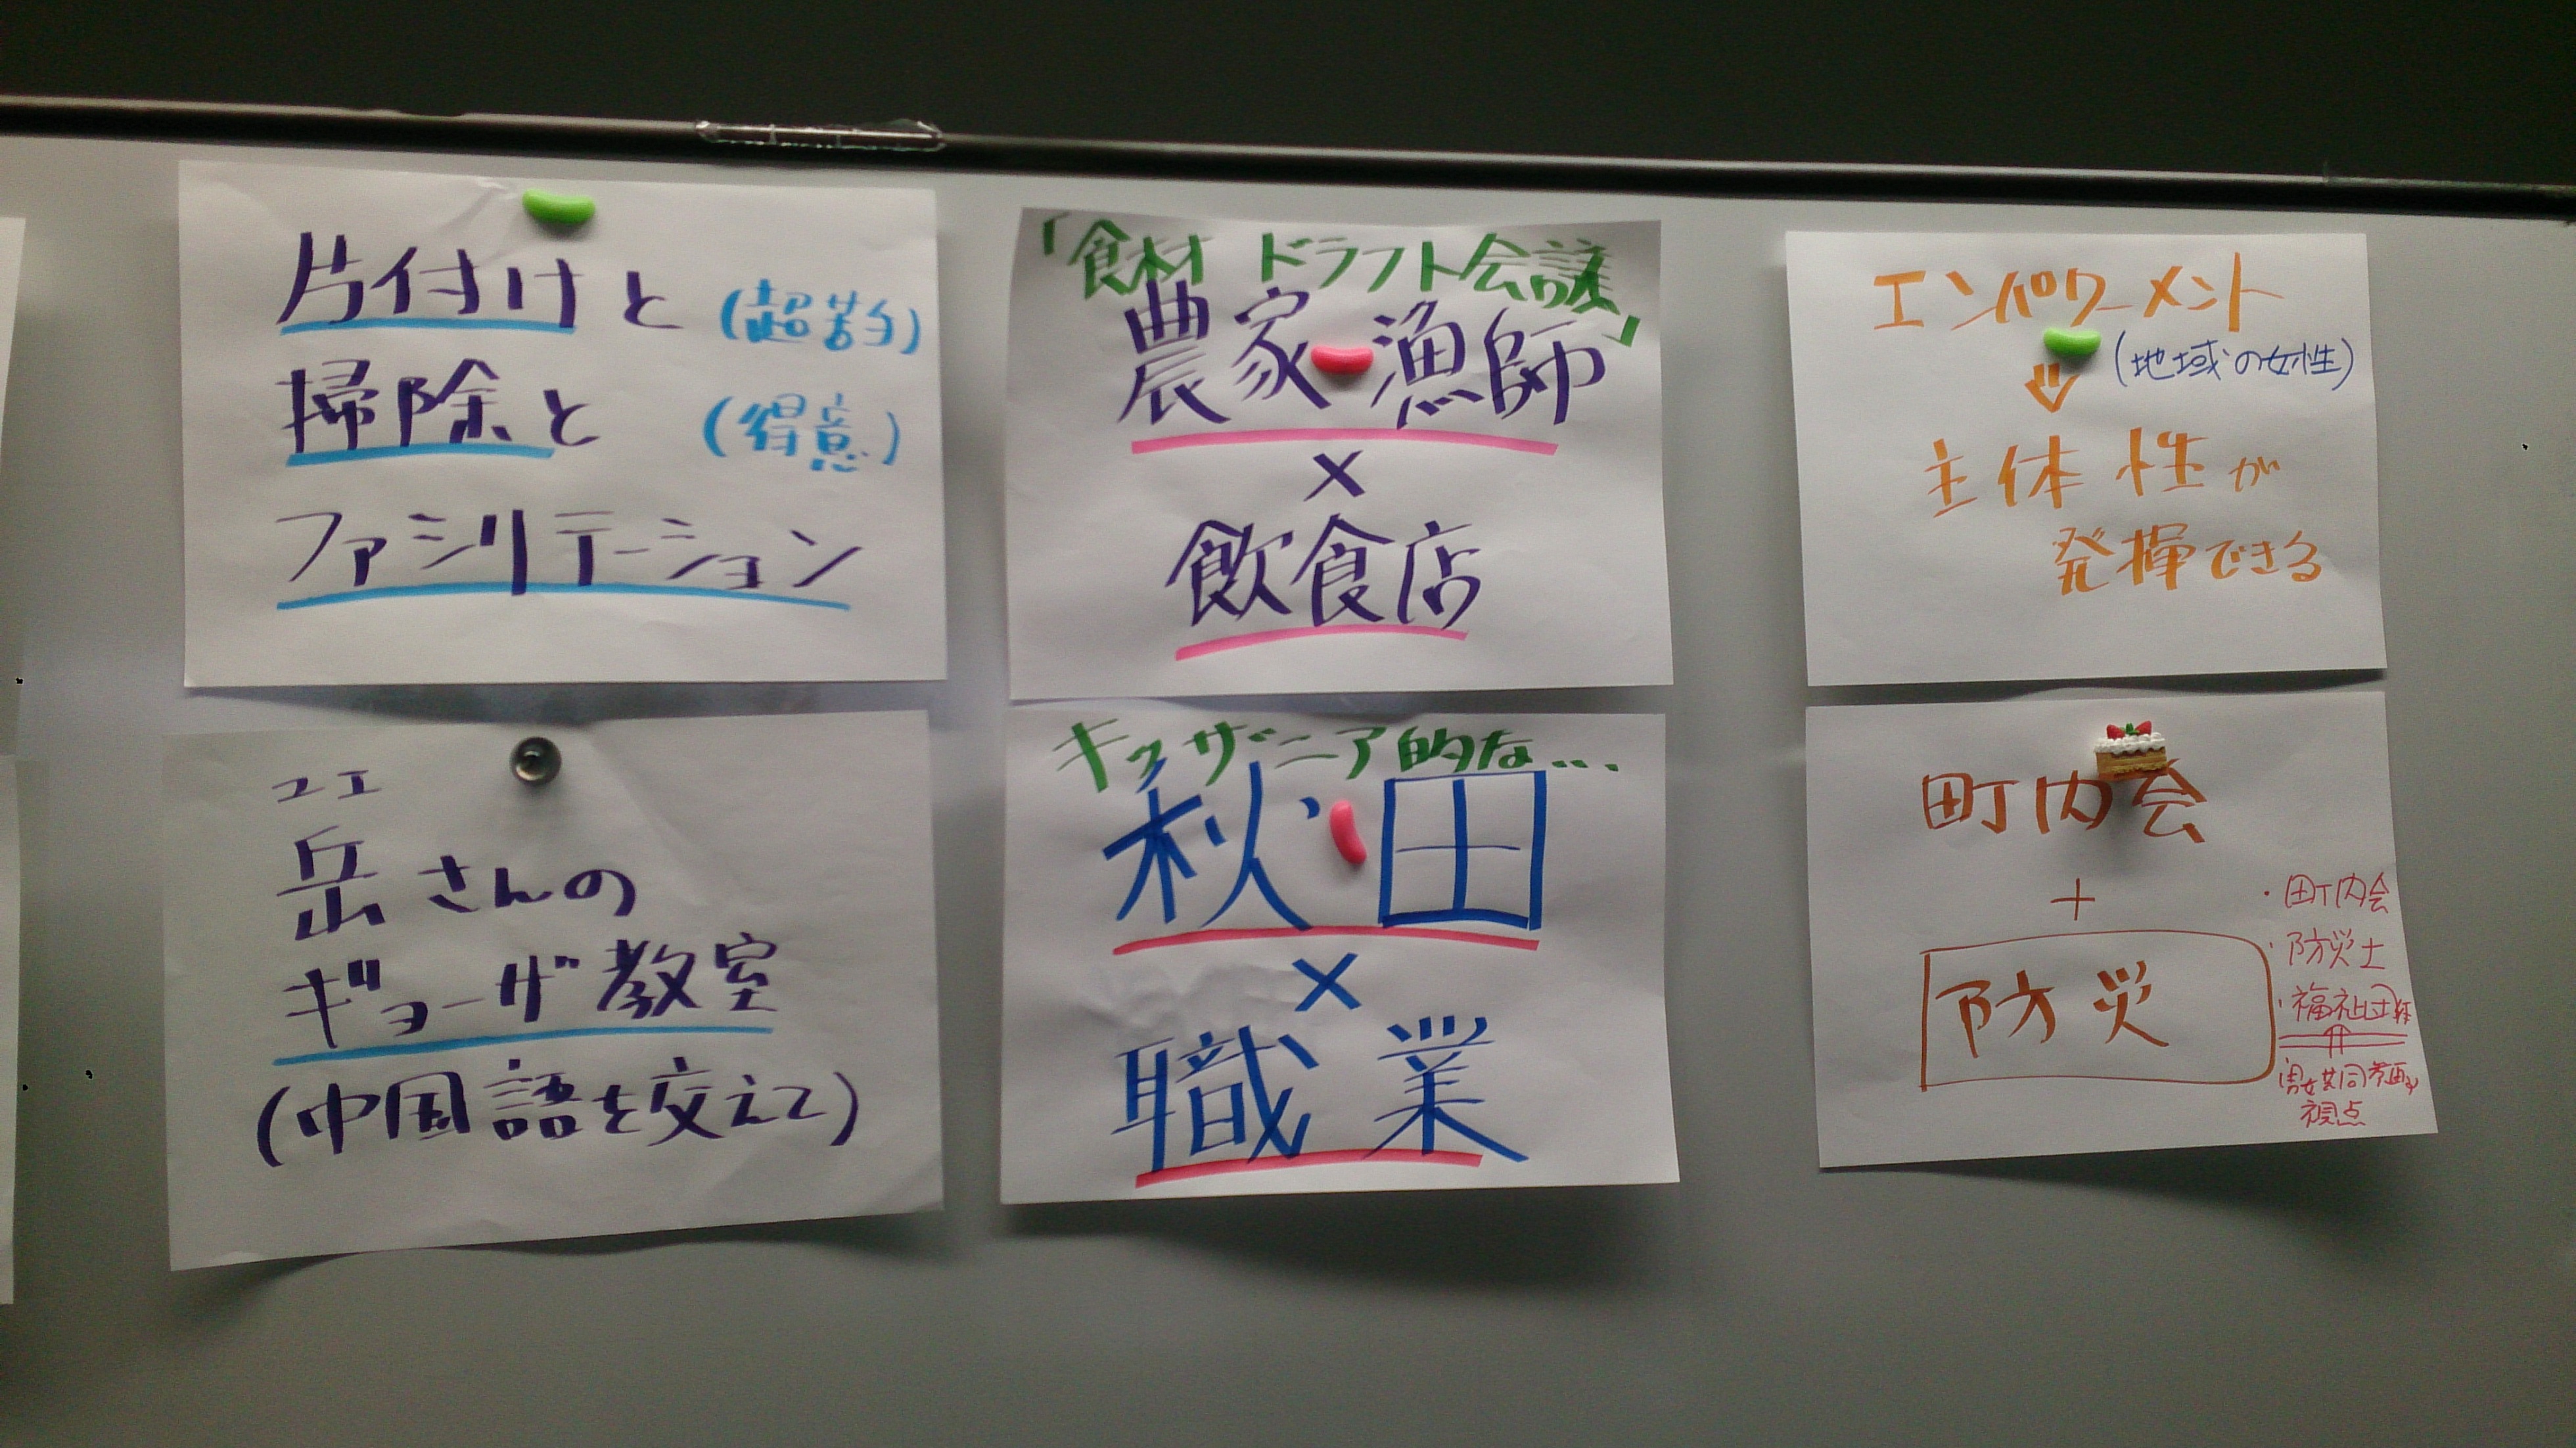 片付けと (超苦手)
掃除と (得意)
ファシリテーション
「食材 ドラフト会議」
農家 漁師
×
飲食店
エンパワーメント
(地域の女性)
主体性が
発揮できる
ユエ
岳さんの
ギョーザ教室
(中国語を交えて)
キッザニア的な...
秋田
×
職業
町内会
+
防災
・町内会
・防災士
・福祉団体
男女共同参画の
視点